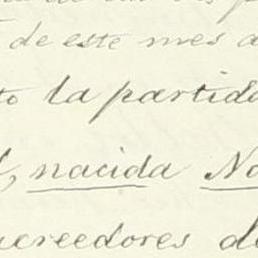 de este mes a
to la partida
l, nacida No
uereedores de